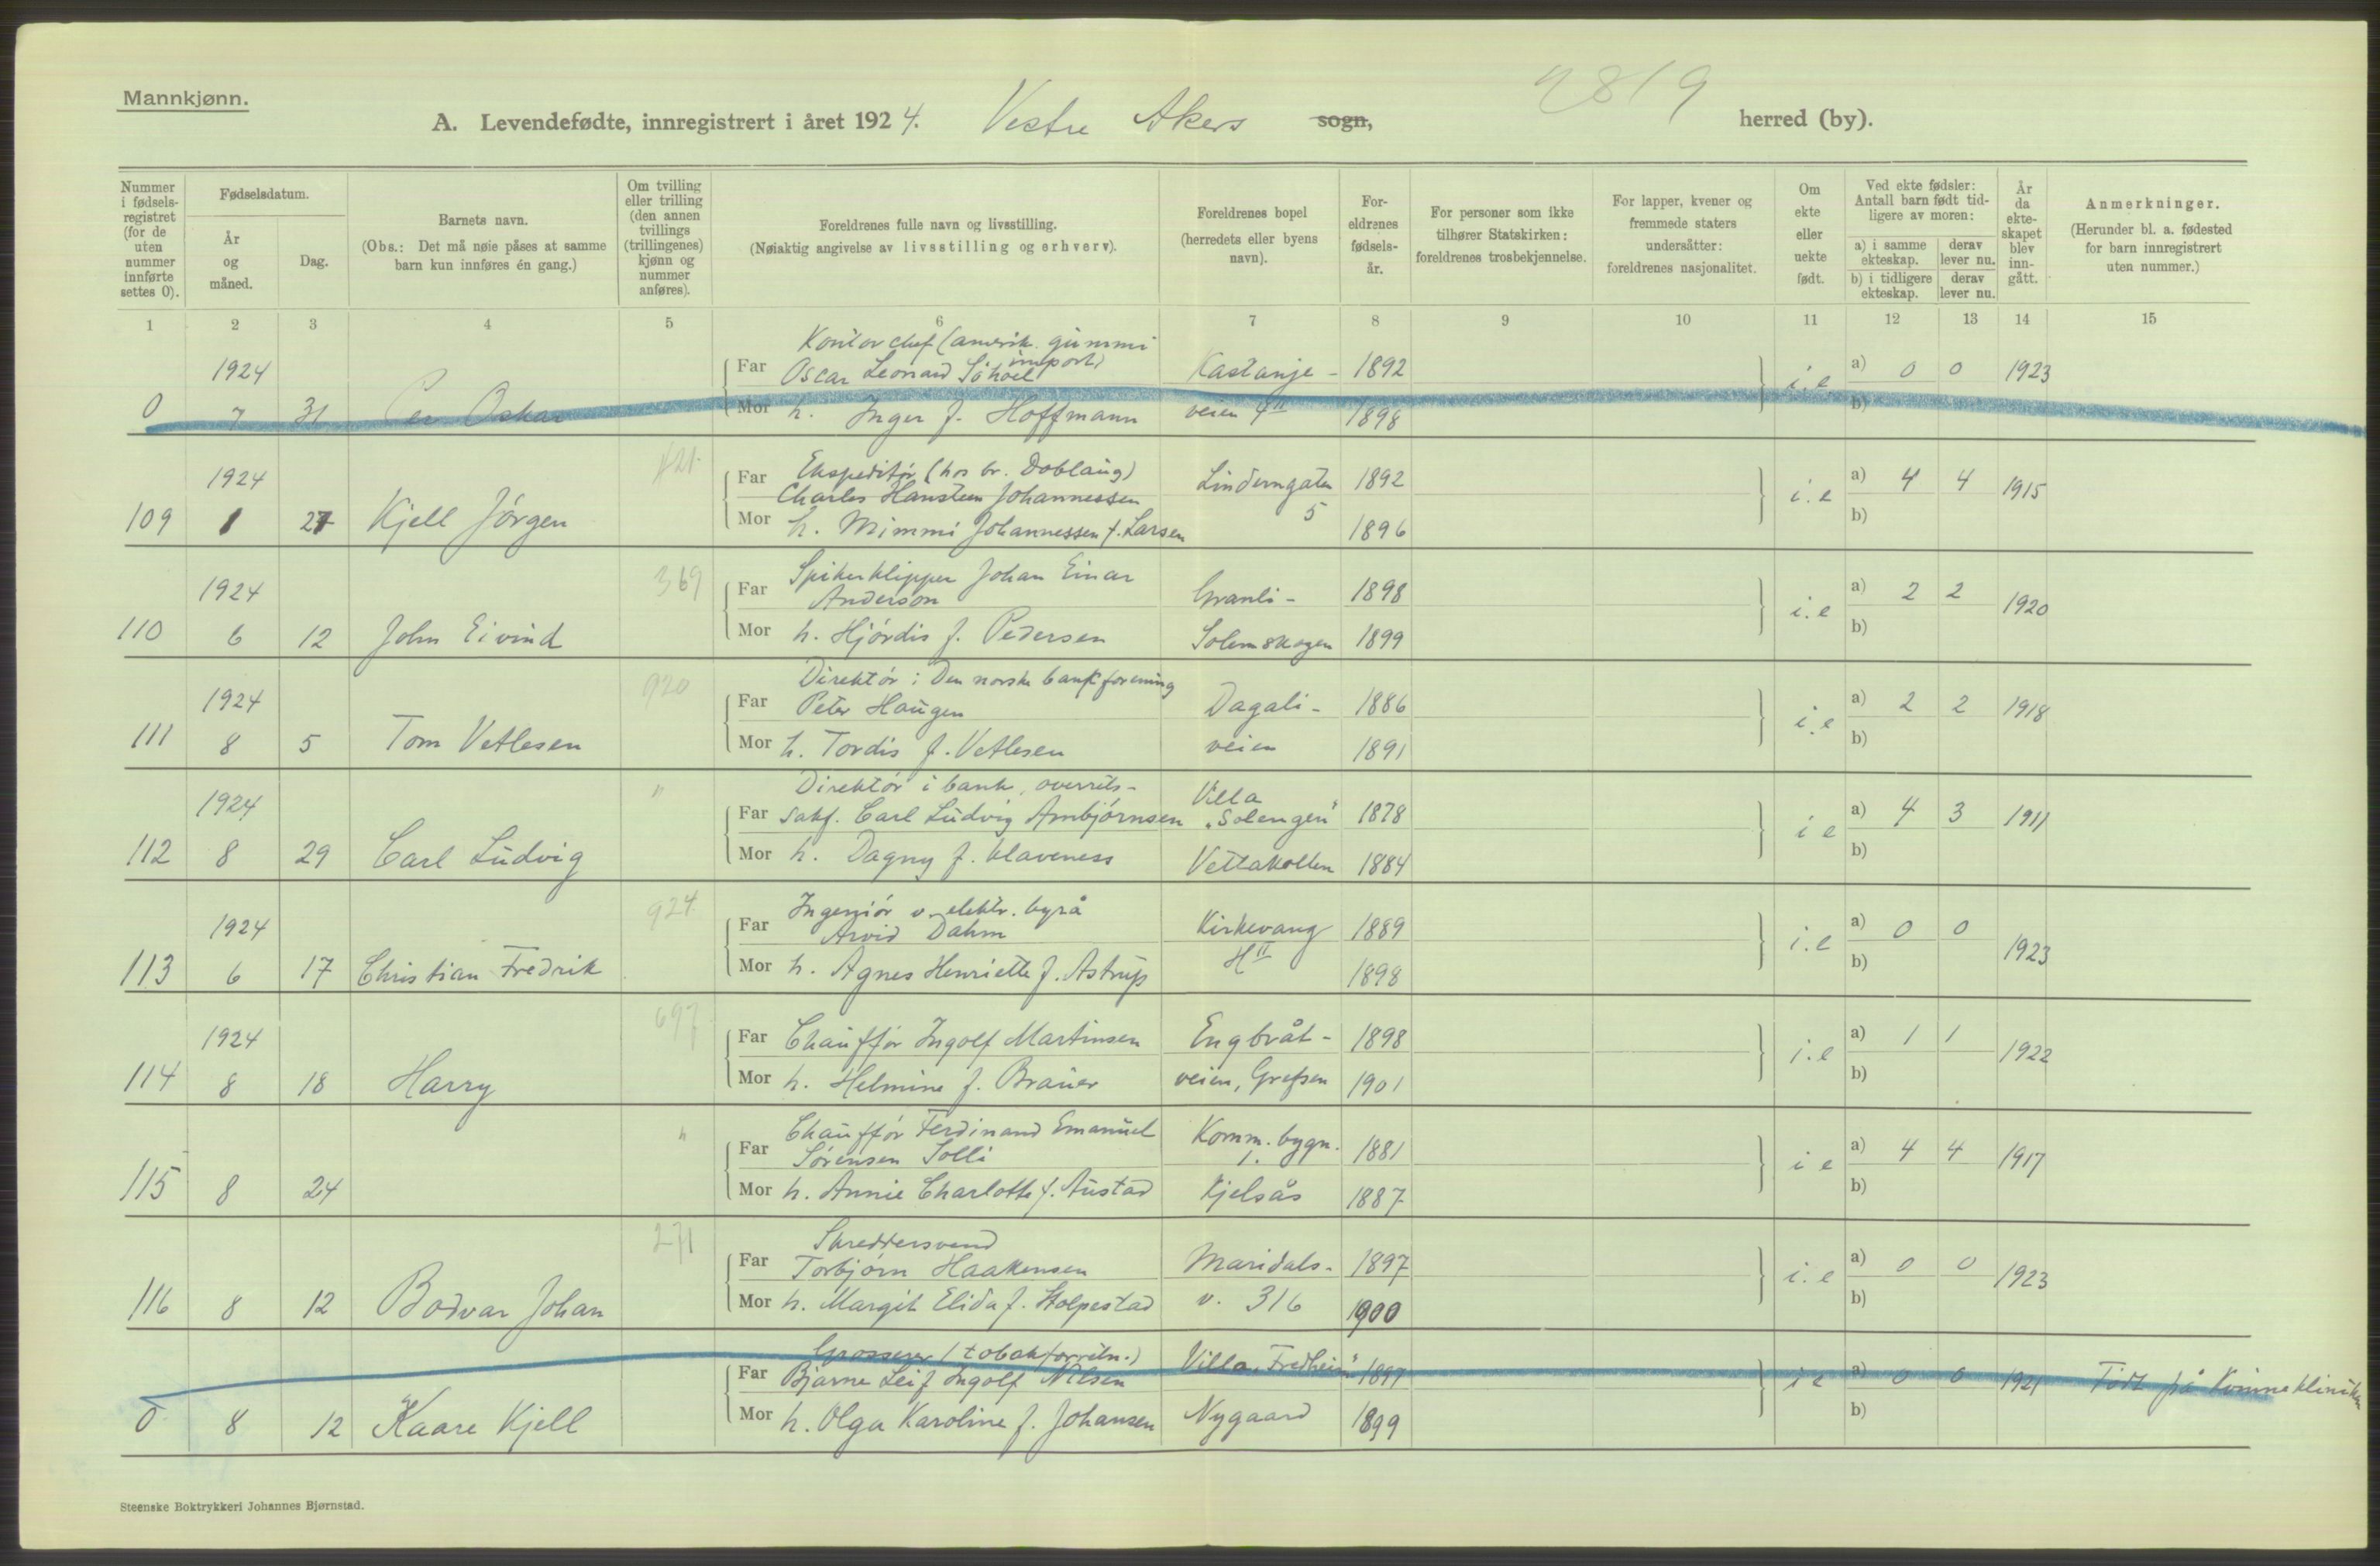 Mannkjønn.
2819
A. Levendefødte, innregistrert i året 1924. Vestre Akers sogn, herred (by).
Nummer i fødselsregistret (for de uten nummer innførte settes 0).
Fødselsdatum.
År og måned.
Dag.
Barnets navn.
(Obs.: Det må nøie påses at samme barn kun innføres én gang.)
Om tvilling eller trilling (den annen tvillings (trillingenes) kjønn og nummer anføres).
Foreldrenes fulle navn og livsstilling.
(Nøiaktig angivelse av livsstilling og erhverv).
Foreldrenes bopel (herredets eller byens navn).
Foreldrenes fødselsår.
For personer som ikke tilhører Statskirken: foreldrenes trosbekjennelse.
For lapper, kvener og fremmede staters undersåtter: foreldrenes nasjonalitet.
Om ekte eller uekte født.
Ved ekte fødsler: Antall barn født tidligere av moren:
a) i samme ekteskap. derav lever nu.
b) i tidligere ekteskap. derav lever nu.
År da ekteskapet blev inngått.
Anmerkninger.
(Herunder bl. a. fødested for barn innregistrert uten nummer.)
1 2 3 4 5 6 7 8 9 10 11 12 13 14 15
Kontorchef (amerik. gummi import)
1924 Far Oscar Leonard Kastanje- 1892 i.e a) 0 0 1923
0 7 31 Per Oskar Mor h. Inger f. Hoffmann veien 4 II 1898 b)
421
Ekspeditør (hos br. Dobloug)
1924 Far Charles Hansteen Johannessen Linderngaten 1892 i.e a) 4 4 1915
109 1 27 Kjell Jörgen Mor h. Mimmi Johannessen f. Larsen 5 1896 b)
369
1924 Far Spikerklipper Johan Einar Anderson Granli- 1898 i.e a) 2 2 1920
110 6 12 John Eivind Mor h. Hjördis f. Pedersen Solemskogen 1899 b)
920
Direktør i Den norske bankforening
1924 Far Peter Haugen Dagali- 1886 i.e a) 2 2 1918
111 8 5 Tom Vetlesen Mor h. Tordis f. Vetlesen veien 1891 b)
"
Direktör i bank, overrets-
1924 Far sakf. Carl Ludvig Ambjörnsen Villa „Solengen" 1878 i e a) 4 3 1911
112 8 29 Carl Ludvig Mor h. Dagny f. Klaveness Vettakollen 1884 b)
924
Ingeniör v. elektr. byrå
1924 Far Arvid Dahm Kirkevang 1889 i.e a) 0 0 1923
113 6 17 Christian Fredrik Mor h. Agnes Henriette f. Astrup H II 1898 b)
697
1924 Far Chaufför Ingolf Martinsen Engbråt- 1898 i.e a) 1 1 1922
114 8 18 Harry Mor h. Helmine f. Brauer veien, Grefsen 1901 b)
"
Far Chaufför Ferdinand Emanuel Sörensen Solli Komm. bygn. 1. 1881 i e a) 4 4 1917
115 8 24 Mor h. Annie Charlotte f. Austad Kjelsås 1887 b)
271
Skreddersvend
Far Torbjörn Haakensen Maridals- 1897 i.e a) 0 0 1923
116 8 12 Bodvar Johan Mor h. Margit Elida f. Stolpestad v. 316 1900 b)
Grosserer (tobakforretn.)
Far Bjarne Leif Ingolf Nilsen Villa „Fredheim" 1897 i e a) 0 0 1921 Född på Kvinneklinikken
0 8 12 Kaare Kjell Mor h. Olga Karoline f. Johansen Nygaard 1899 b)
Steenske Boktrykkeri Johannes Bjørnstad.